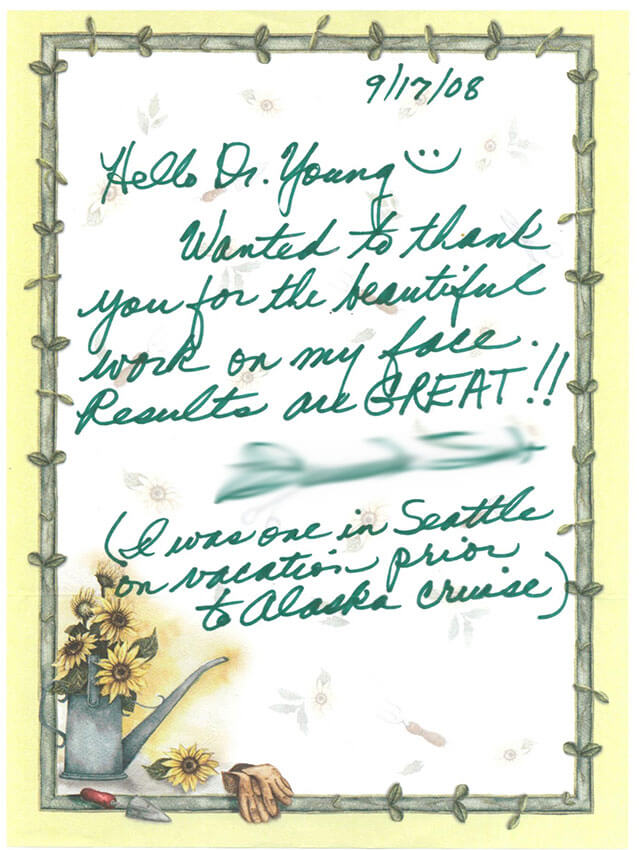 9/17/08
Hello Dr. Young
Wanted to thank
you for the beautiful
work on my face.
Results are GREAT!!
(I was one in Seattle
on vacation prior
to Alaska cruise)